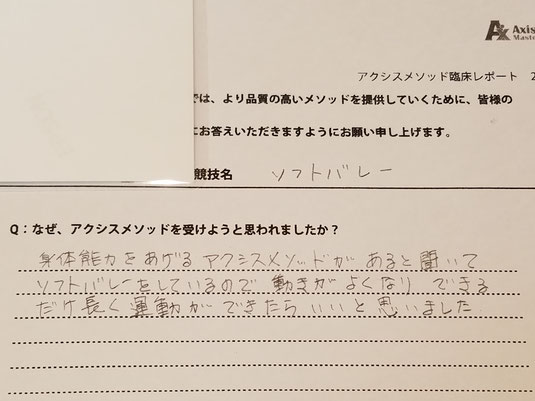 Axis
Maste
アクシスメソッド臨床レポート 2
では、より品質の高いメソッドを提供していくために、皆様の
にお答えいただきますようにお願い申し上げます。
競技名 ソフトバレー
Q：なぜ、アクシスメソッドを受けようと思われましたか？
身体能力をあげるアクシスメソッドがあると聞いて
ソフトバレーをしているので動きがよくなり できる
だけ長く運動ができたらいいと思いました